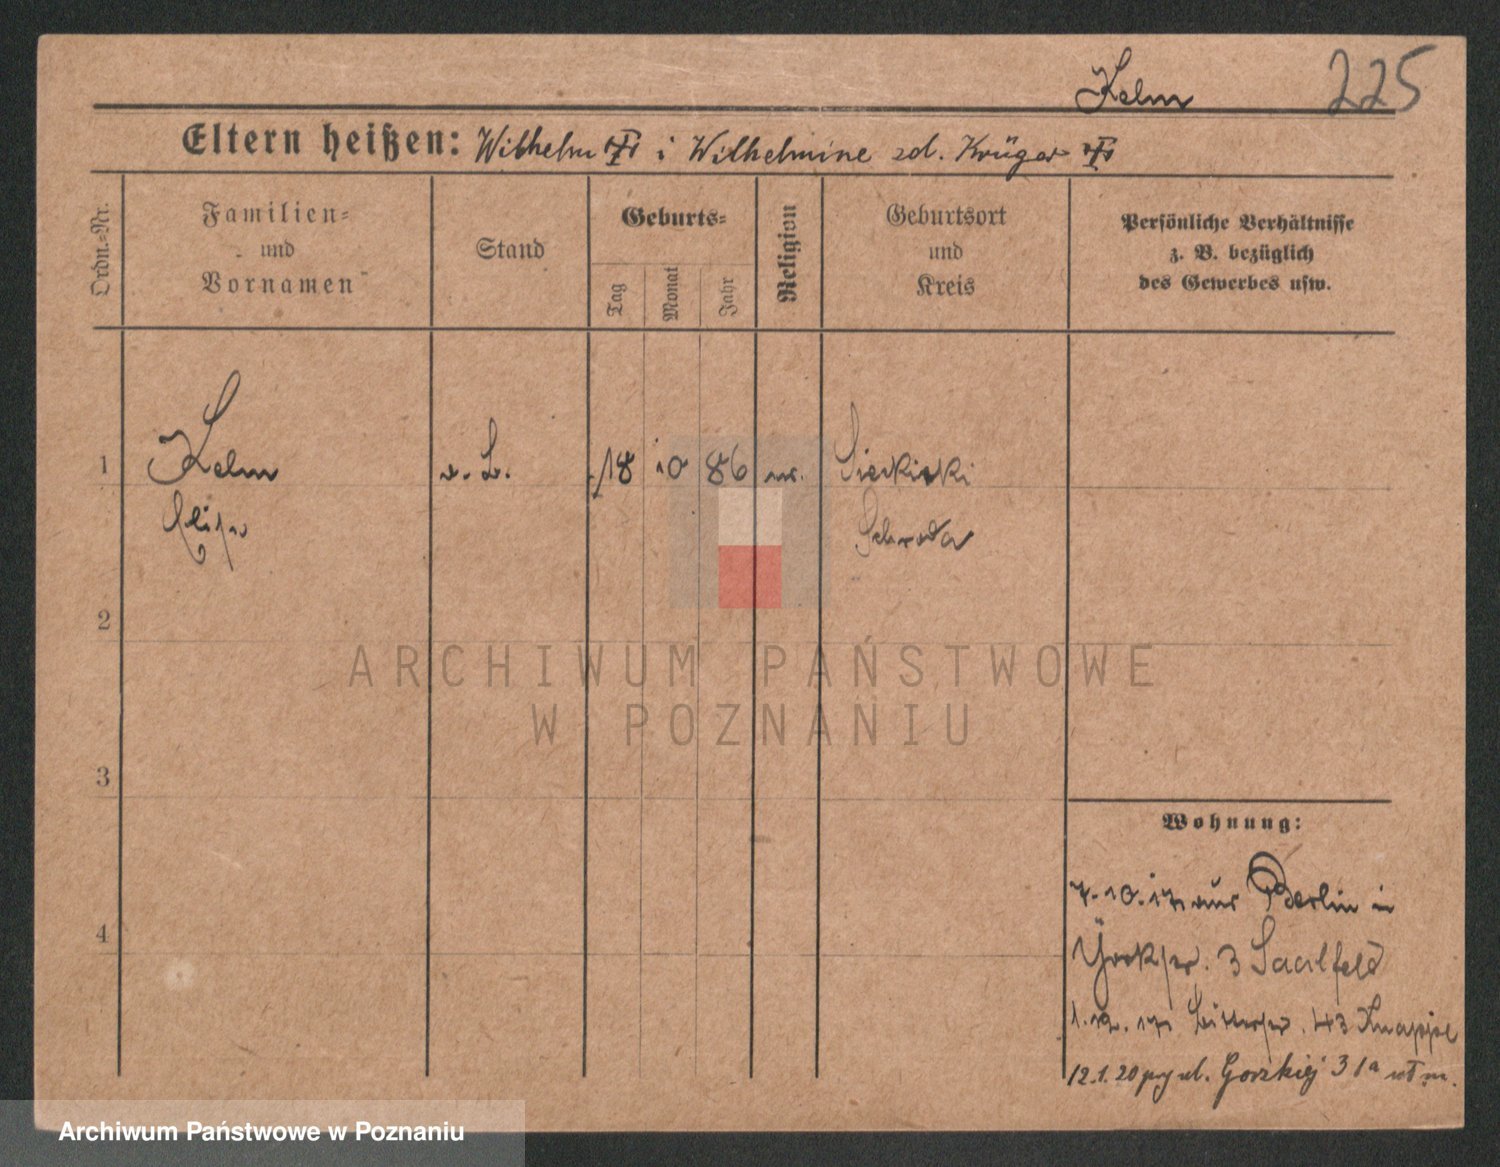 Kelm 225
Eltern heißen: Wilhelm i Wilhelmine zd. Krüger
Ordn.=Nr.
Familien=
und
Vornamen
Stand
Geburts=
Tag
Monat
Jahr
Religion
Geburtsort
und
Kreis
Persönliche Verhältnisse
z. B. bezüglich
des Gewerbes usw.
1 Kelm 18 10 86 Siekierki
Schroda
2
3
4
ARCHIWUM PAŃSTWOWE
W POZNANIU
Wohnung:
7.10.17 aus Berlin in
Yorkstr. 3 Saalfeld
1.12.17 Bitterstr. 43 Knappe
12.1.20 przy ul. Gorzkiej 31a
Archiwum Państwowe w Poznaniu